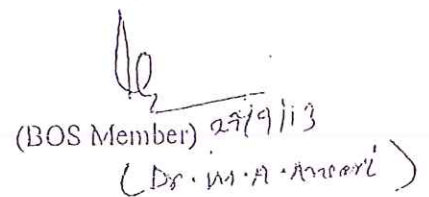 (BOS Member) 27/9/13
(Dr. M. A. Ansari)